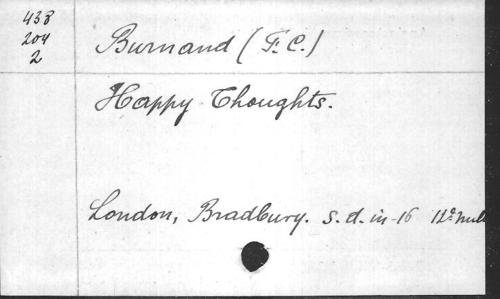 438
204
2
Burnand (F. C.)
Happy Thoughts.
London, Bradbury. s. d. in-16 12e mill